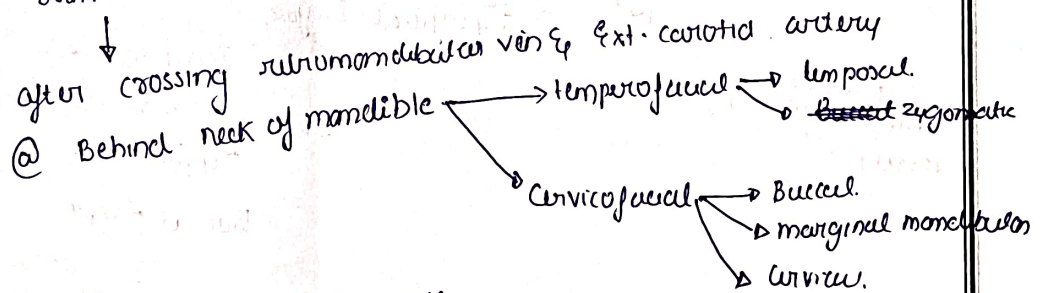 after crossing retromandibular vein & Ext. carotid artery
@ Behind neck of mandible → temperofacial → temporal.
→ zygomatic
→ Cervicofacial → Buccal.
→ marginal mandibular
→ cervical.